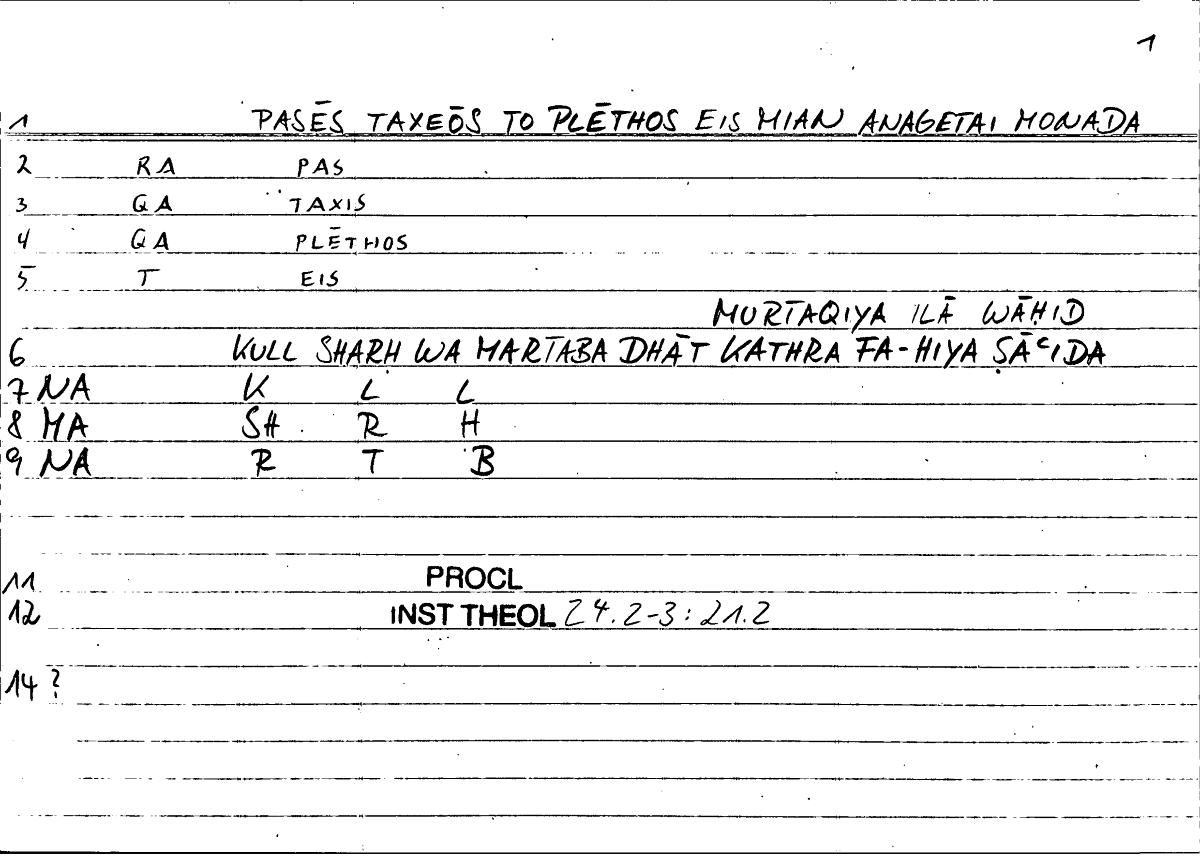 1
1 PASĒS TAXEŌS TO PLĒTHOS EIS MIAN ANAGETAI MONADA
2 RA PAS
3 QA TAXIS
4 QA PLĒTHOS
5 T EIS
MURTAQIYA ILĀ WĀḤID
6 KULL SHARḤ WA MARTABA DHĀT KATHRA FA-HIYA ṢĀʿIDA
7 NA K L L
8 MA SH R H
9 NA R T B
11 PROCL
12 INST THEOL 24.2-3: 21.2
14 ?